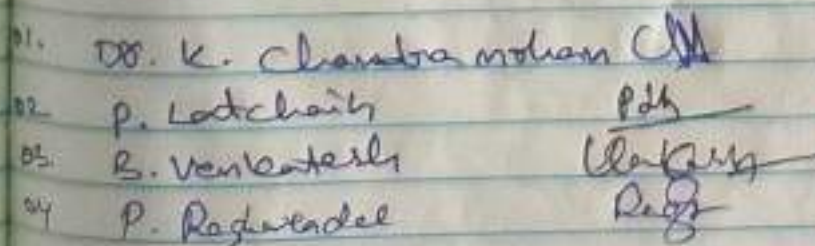 01. Dr. K. Chandra mohan
02 P. Latchaih
03. B. Venkatesh
04 P. Raghvendel